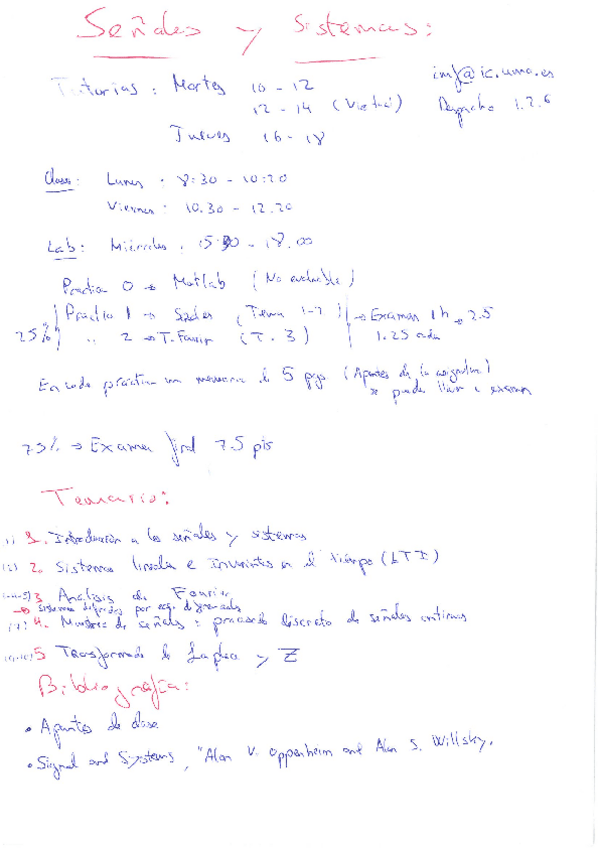 Señales y Sistemas:
Tutorías: Martes 10 - 12
12 - 14 (Virtual)
Jueves 16 - 18
@ic.uma.es
Despacho 1.2.6
Clases: Lunes : 8:30 - 10:20
Viernes: 10.30 - 12.20
Lab: Miércoles : 15:30 - 18.00
Práctica 0 → Matlab (No evaluable)
25% Práctica 1 → Señales (Tema 1-2) → Examen 1h → 2.5
" 2 → T. Fourier (T. 3) 1.25 cada
En cada práctica una memoria de 5 pgs (Apuntes de la asignatura)
se puede llevar a examen
75% → Examen final 7.5 pts
Temario:
1. Introducción a las señales y sistemas
2. Sistemas lineales e invariantes en el tiempo (LTI)
3 Análisis de Fourier
→ Sistemas definidos por eq. diferenciales
4. Muestreo de señales : procesado discreto de señales continuas
5 Transformada de Laplace y Z
Bibliografía:
• Apuntes de clase
• Signal and Systems, "Alan V. Oppenheim and Alan S. Willsky.